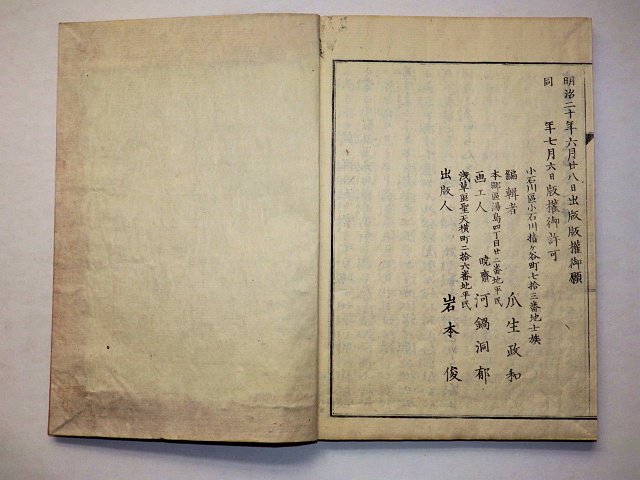 明治二十年六月廿八日出版版權御願
同 年七月六日版權御許可
小石川區小石川指ヶ谷町七拾三番地士族
編輯者 瓜生政和
本鄉區湯島四丁目廿二番地平民
画工人 曉齋 河鍋洞郁
淺草區聖天橫町二拾六番地平民
出版人 岩本俊